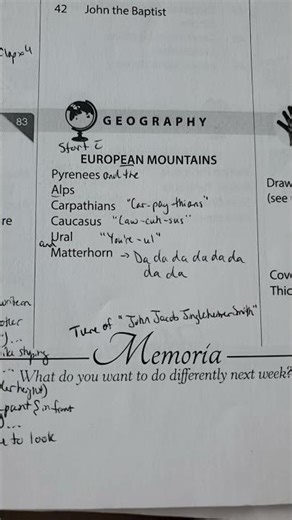 42 John the Baptist
clap x4
83
GEOGRAPHY
Start c̄
EUROPEAN MOUNTAINS
Pyrenees and the
Alps
Carpathians "Car-pay-thians"
Caucasus "Caw-cuh-sus"
Ural "You're-ul"
and
Matterhorn → Da da da da da da
da da
Draw
(see
re
Cove
Thic
Tune of "John Jacob Jingleheimer Smith"
Memoria
What do you want to do differently next week?
written
other
like shaping
paint & infant
to look